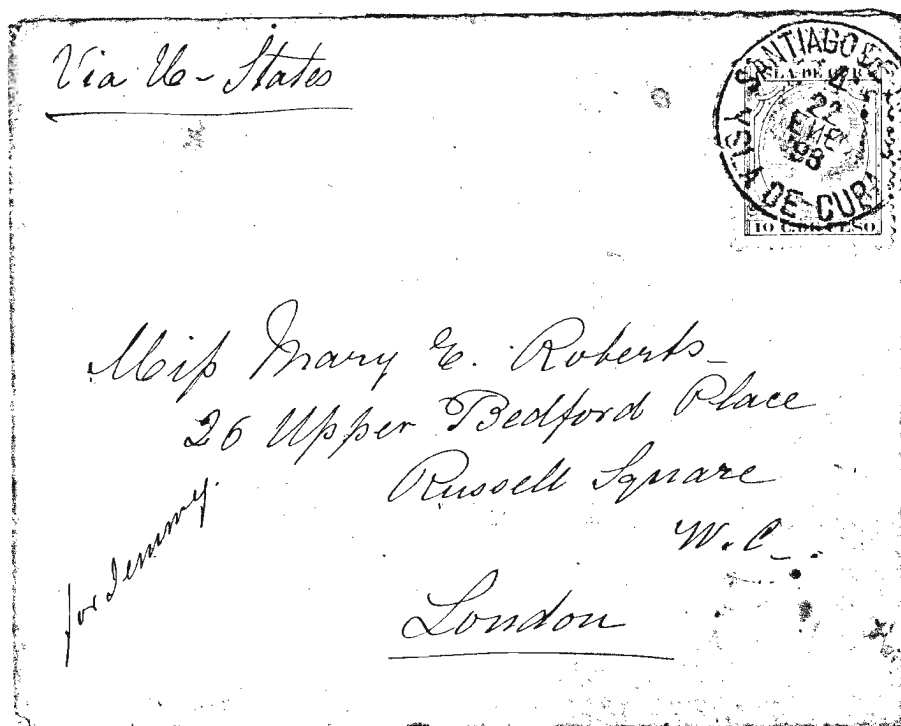 Via U-States
SANTIAGO DE
ISLA DE CUBA
22
ENE
98
YSLA DE CUBA
10 C. DE PESO
Miss Mary E. Roberts
26 Upper Bedford Place
Russell Square
W.C.
London
for Jemmy.